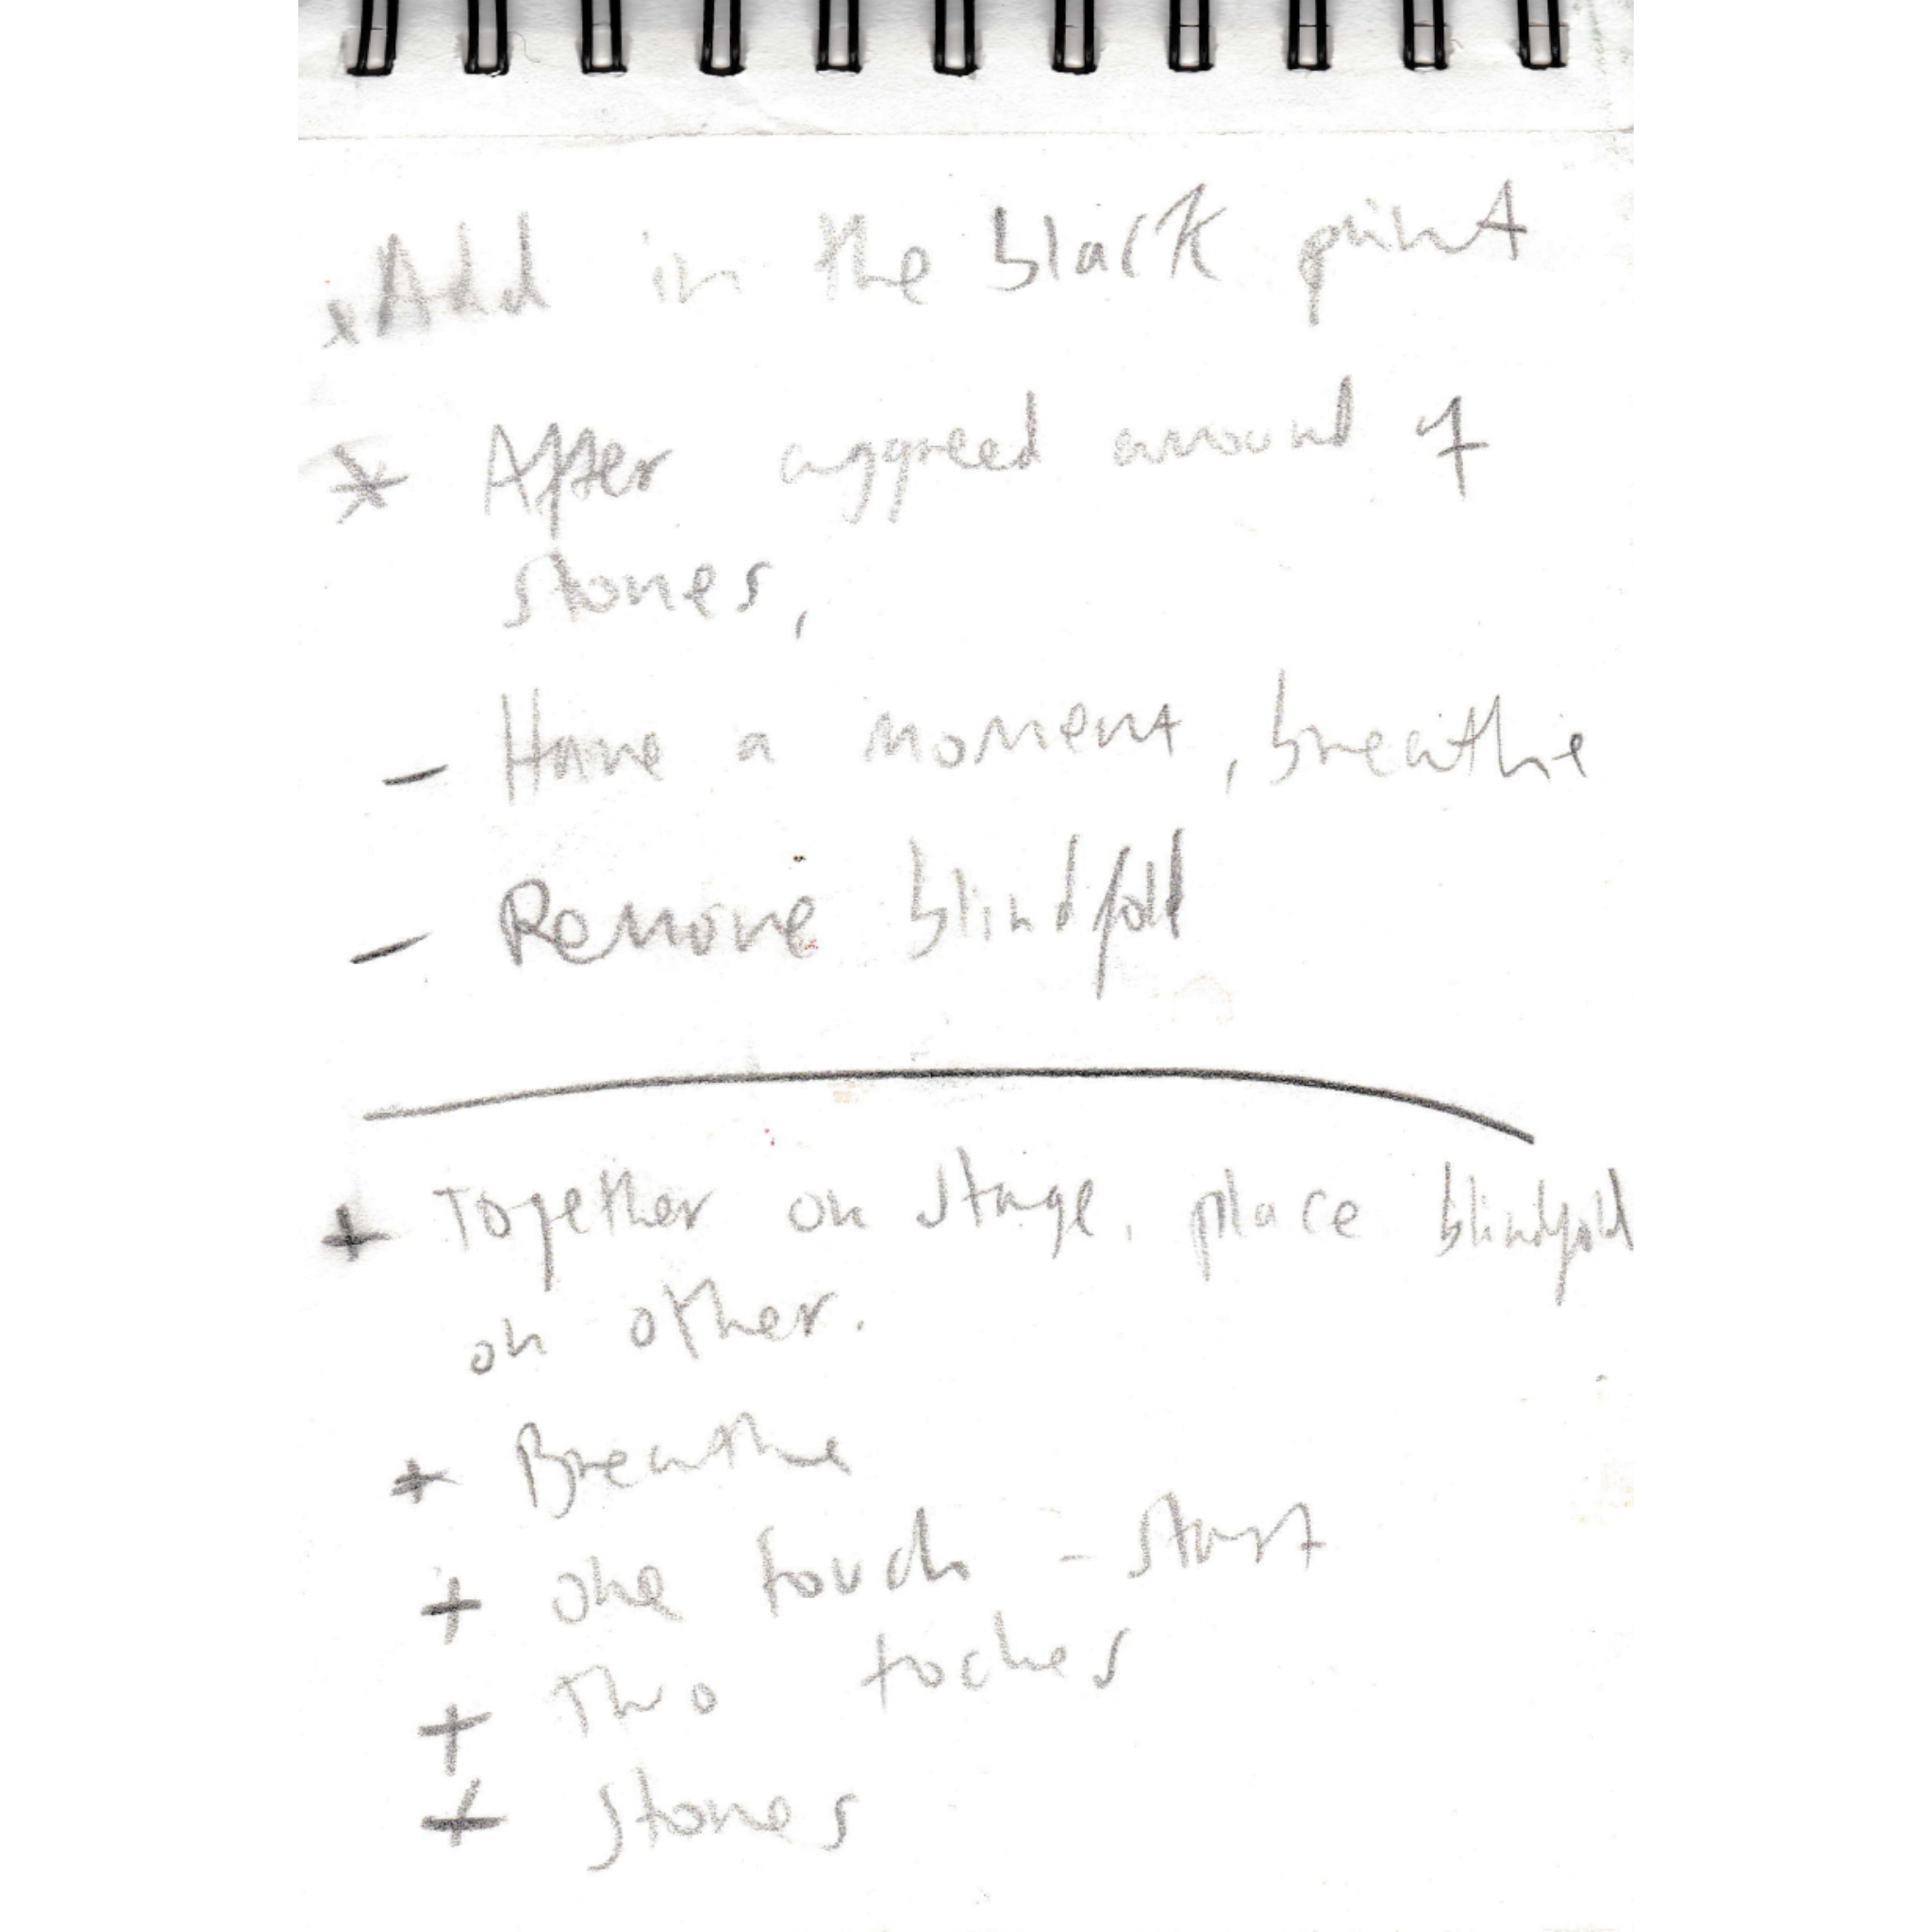 x Add in the black paint
* After aggreed around of
stones,
- Have a moment, breathe
- Remove blindfold
+ Together on stage, place blindfold
on other.
+ Breathe
+ One touch - start
+ Two toches
+ Stones